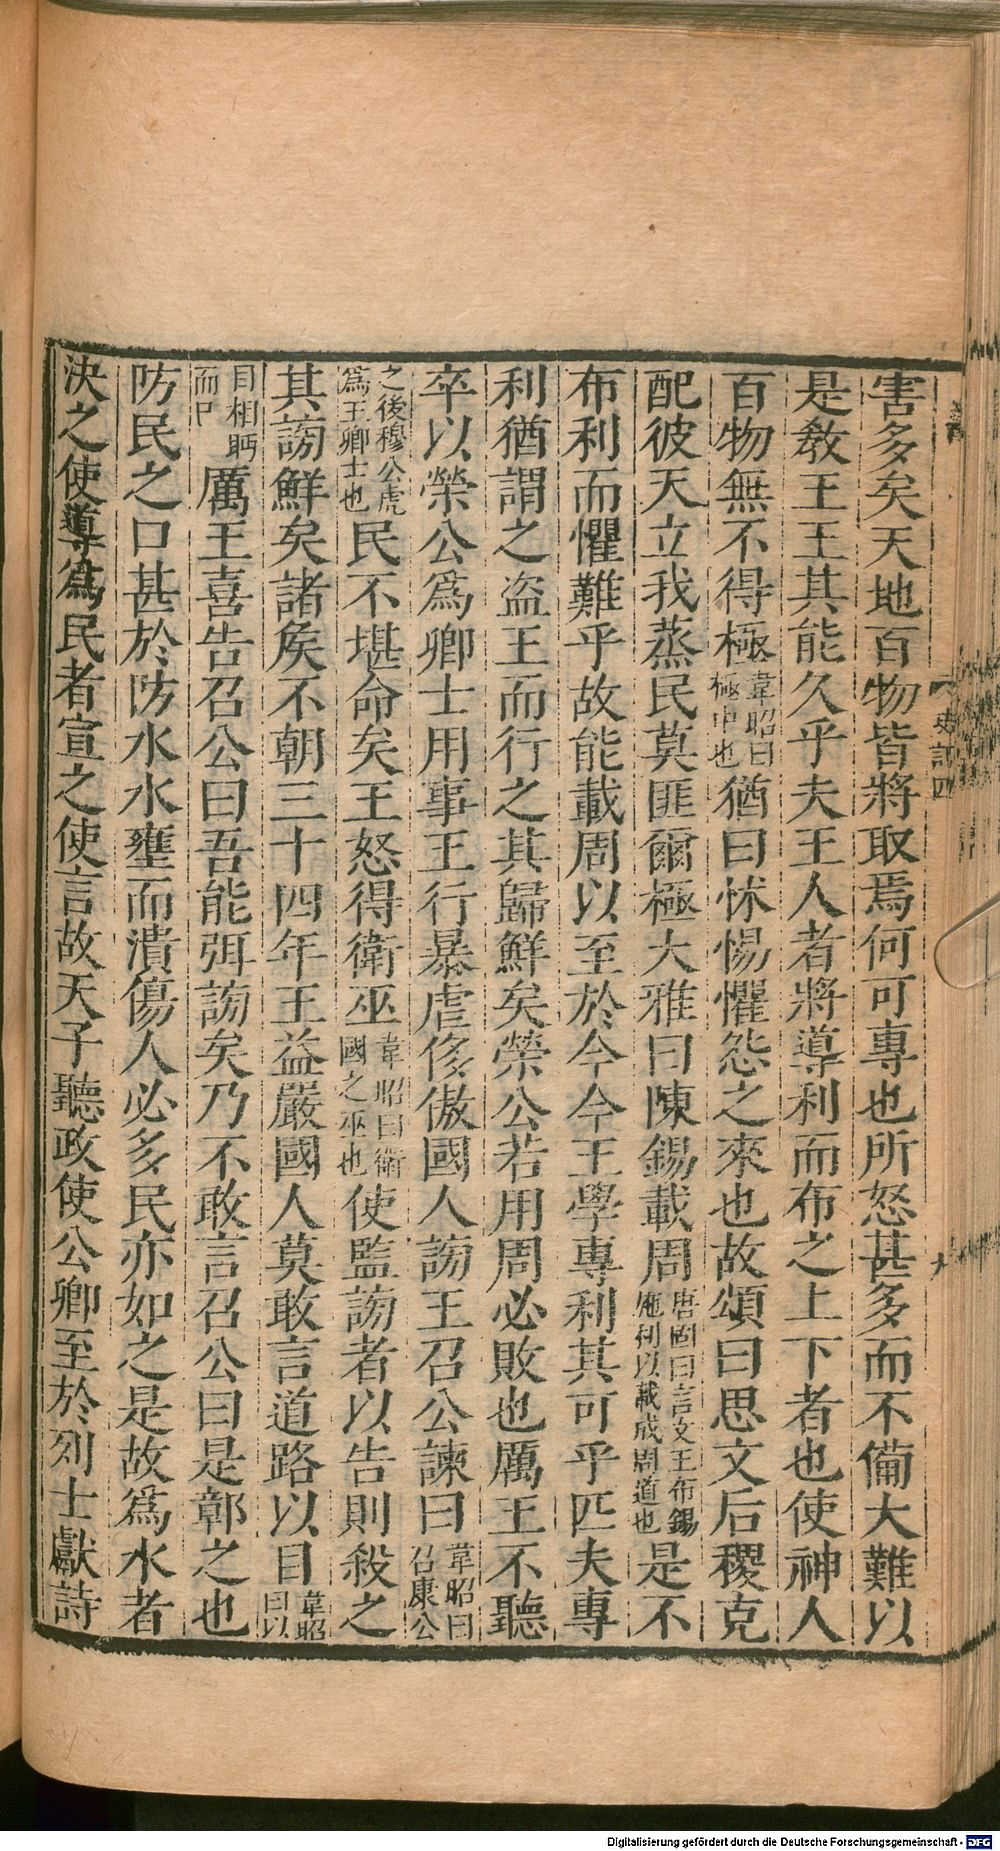 害多矣天地百物皆將取焉何可專也所怒甚多而不備大難以
是敎王王其能久乎夫王人者將導利而布之上下者也使神人
百物無不得極韋昭曰極中也猶曰怵惕懼怨之來也故頌曰思文后稷克
配彼天立我蒸民莫匪爾極大雅曰陳錫載周唐固曰言文王布錫施利以載成周道也是不
布利而懼難乎故能載周以至於今今王學專利其可乎匹夫專
利猶謂之盗王而行之其歸鮮矣榮公若用周必敗也厲王不聽
卒以榮公爲卿士用事王行暴虐侈傲國人謗王召公諫曰韋昭曰召康公
之後穆公虎爲王卿士也民不堪命矣王怒得衛巫韋昭曰衛國之巫也使監謗者以告則殺之
其謗鮮矣諸矦不朝三十四年王益嚴國人莫敢言道路以目韋昭曰以
目相眄而已厲王喜告召公曰吾能弭謗矣乃不敢言召公曰是鄣之也
防民之口甚於防水水壅而潰傷人必多民亦如之是故爲水者
決之使導爲民者宣之使言故天子聽政使公卿至於列士獻詩
史記四
九
Digitalisierung gefördert durch die Deutsche Forschungsgemeinschaft - DFG